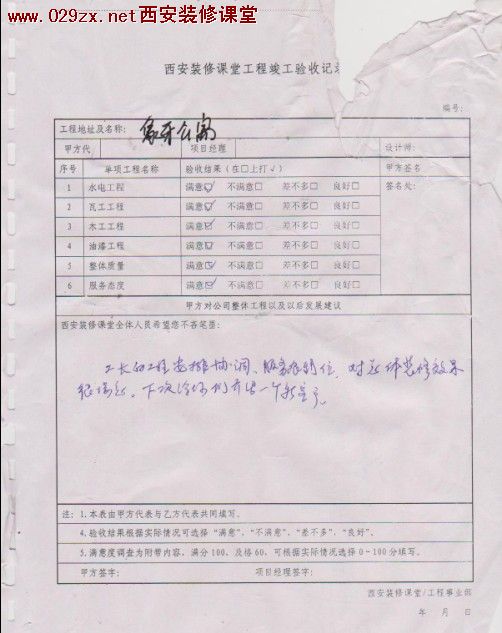 www.029zx.net西安装修课堂
西安装修课堂工程竣工验收记录
编号:
工程地址及名称: 象牙公寓
甲方代 项目经理 设计师:
序号 单项工程名称 验收结果（在□上打√） 甲方签名
1 水电工程 满意☑ 不满意□ 差不多□ 良好□ 签名处:
2 瓦工工程 满意☑ 不满意□ 差不多□ 良好□
3 木工工程 满意☑ 不满意□ 差不多□ 良好□
4 油漆工程 满意☑ 不满意□ 差不多□ 良好□
5 整体质量 满意☑ 不满意□ 差不多□ 良好□
6 服务态度 满意☑ 不满意□ 差不多□ 良好□
甲方对公司整体工程以及以后发展建议
西安装修课堂全体人员希望您不吝笔墨:
工长的工程安排协调、服务很到位，对总体装修效果
很满意。下次给你们介绍一个新客户。
注: 1.本表由甲方代表与乙方代表共同填写。
4.验收结果根据实际情况可选择“满意”，“不满意”，“差不多”，“良好”。
5.满意度调查为附带内容，满分100，及格60，可根据实际情况选择0-100分填写。
甲方签字: 项目经理签字:
西安装修课堂/工程事业部
年 月 日